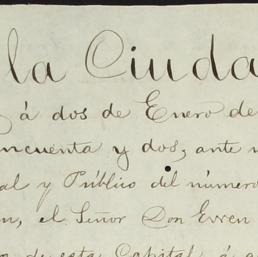 la Ciuda
á dos de Enero de
ncuenta y dos, ante
al y Público del número
n, el Señor Don
de esta Capital á